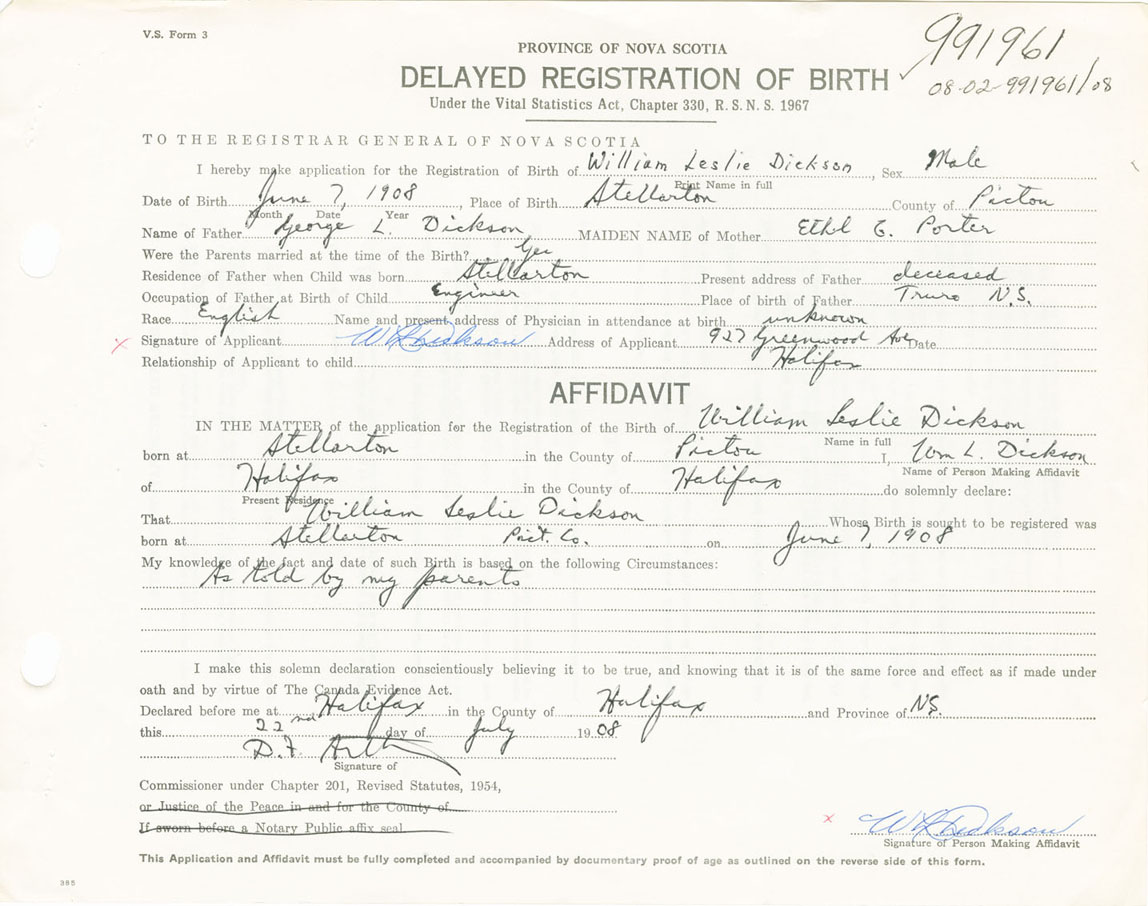 V.S. Form 3
991961
PROVINCE OF NOVA SCOTIA
DELAYED REGISTRATION OF BIRTH
08-02-991961/08
Under the Vital Statistics Act, Chapter 330, R. S. N. S. 1967
TO THE REGISTRAR GENERAL OF NOVA SCOTIA
I hereby make application for the Registration of Birth of William Leslie Dickson, Sex Male
Print Name in full
Date of Birth June 7, 1908, Place of Birth Stellarton County of Pictou
Month Date Year
Name of Father George L. Dickson MAIDEN NAME of Mother Ethl E. Porter
Were the Parents married at the time of the Birth? Yes
Residence of Father when Child was born Stellarton Present address of Father deceased
Occupation of Father at Birth of Child Engineer Place of birth of Father Truro N.S.
Race English Name and present address of Physician in attendance at birth unknown
x Signature of Applicant W L Dickson Address of Applicant 927 Greenwood Ave Date
Halifax
Relationship of Applicant to child
AFFIDAVIT
IN THE MATTER of the application for the Registration of the Birth of William Leslie Dickson
Name in full
born at Stellarton in the County of Pictou I, Wm L. Dickson
Name of Person Making Affidavit
of Halifax in the County of Halifax do solemnly declare:
Present Residence
That William Leslie Dickson Whose Birth is sought to be registered was
born at Stellarton Pict. Co. on June 7, 1908
My knowledge of the fact and date of such Birth is based on the following Circumstances:
As told by my parents
I make this solemn declaration conscientiously believing it to be true, and knowing that it is of the same force and effect as if made under
oath and by virtue of The Canada Evidence Act.
Declared before me at Halifax in the County of Halifax and Province of N.S.
this 22nd day of July 1908
D.F.
Signature of
Commissioner under Chapter 201, Revised Statutes, 1954,
or Justice of the Peace in and for the County of
If sworn before a Notary Public affix seal
x W L Dickson
Signature of Person Making Affidavit
This Application and Affidavit must be fully completed and accompanied by documentary proof of age as outlined on the reverse side of this form.
385